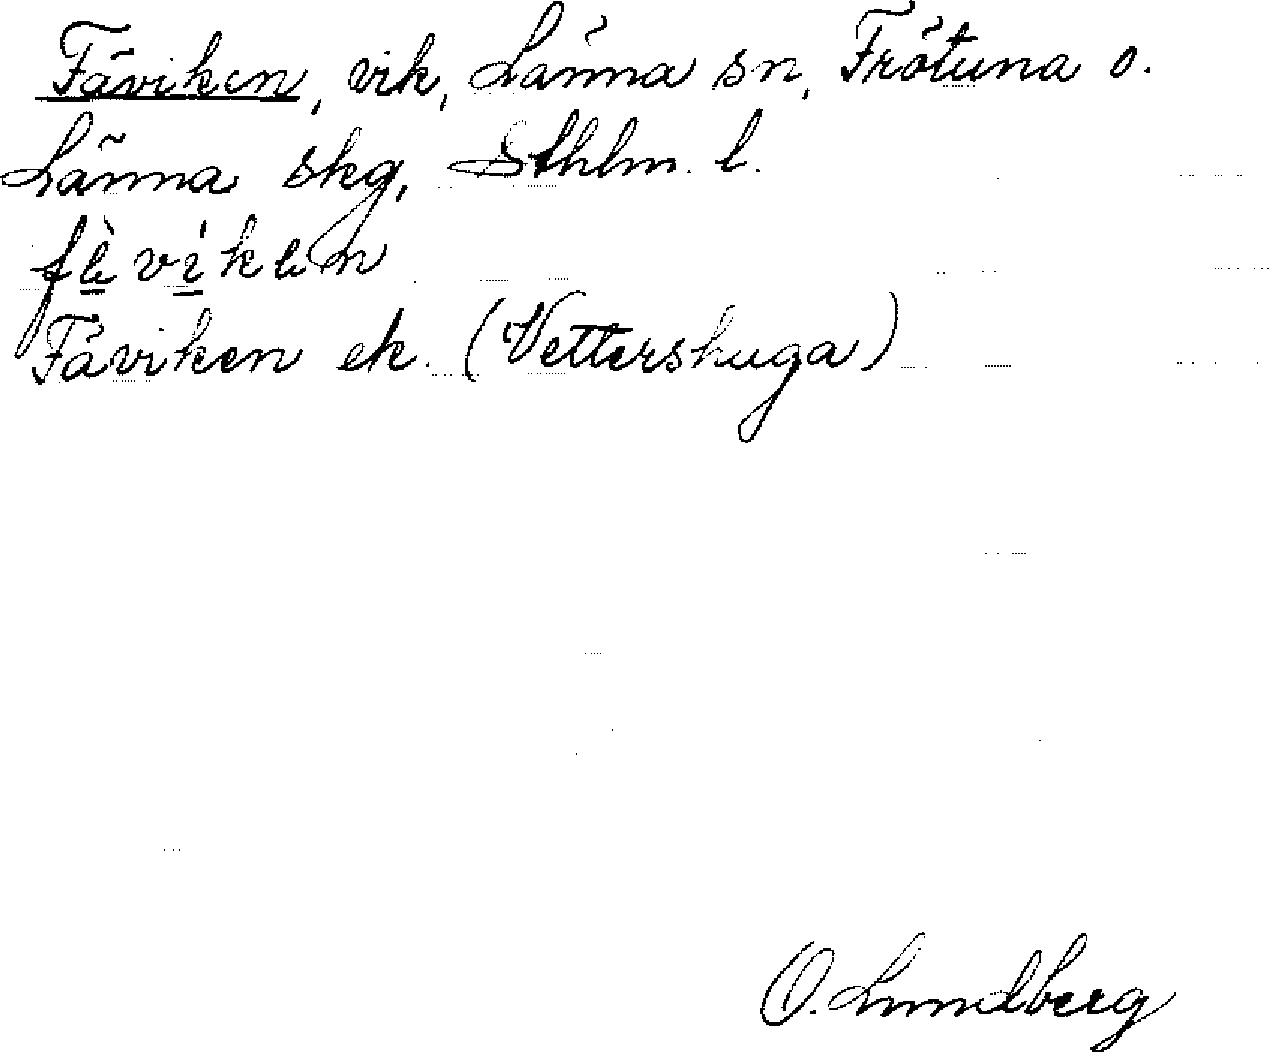 Fäviken, vik, Länna sn, Frötuna o.
Länna skg, Sthlm. l.
Fäviken ek. (Vettershuga)
O. Lundberg